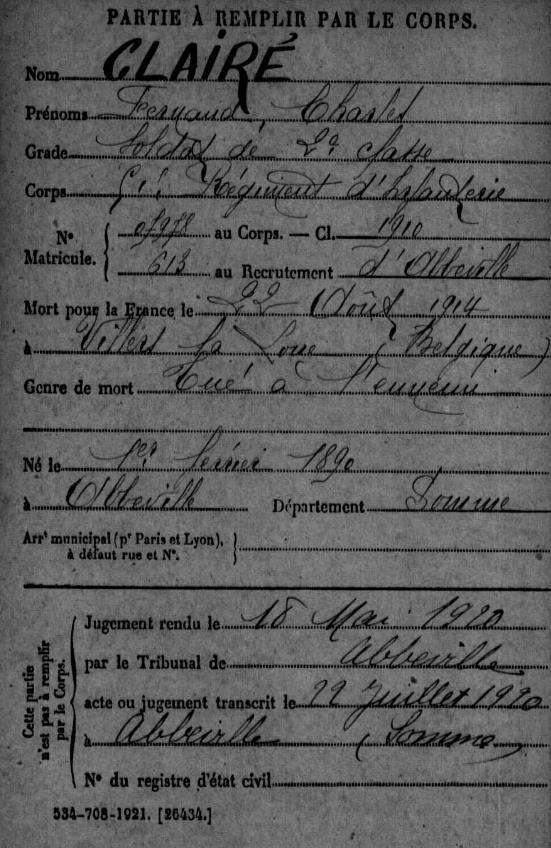 PARTIE À REMPLIR PAR LE CORPS.
Nom CLAIRÉ
Prénoms Fernand, Charles
Grade Soldat de 2e classe
Corps Régiment d'Infanterie
No Matricule. { 07978 au Corps. — Cl. 1910
613 au Recrutement d'Abbeville
Mort pour la France le 22 Août 1914
à Villers la Loue (Belgique)
Genre de mort Tué à l'ennemi
Né le 1er février 1890
à Abbeville Département Somme
Arrt municipal (pr Paris et Lyon), }
à défaut rue et No.
Cette partie
n'est pas à remplir
par le Corps.
Jugement rendu le 18 Mai 1920
par le Tribunal de Abbeville
acte ou jugement transcrit le Juillet 1920
à Abbeville (Somme)
No du registre d'état civil
534-708-1921. [26434.]